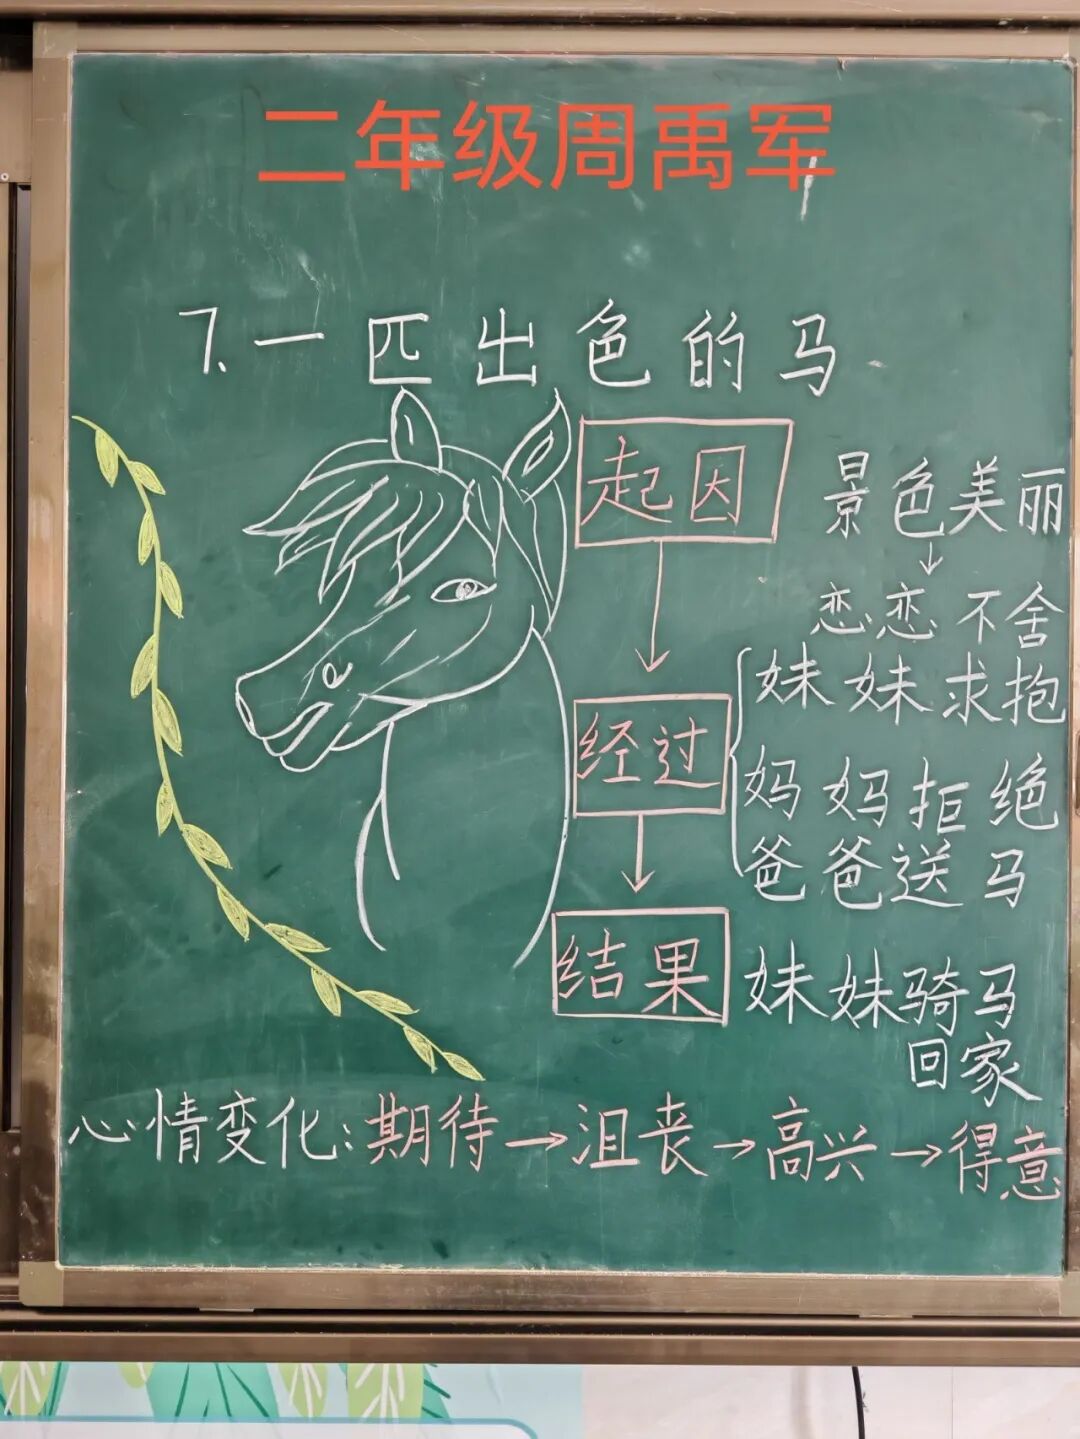 二年级周禹军
7.一匹出色的马
起因
景色美丽
↓
恋恋不舍
经过
妹妹求抱
妈妈拒绝
爸爸送马
结果
妹妹骑马
回家
心情变化:期待→沮丧→高兴→得意